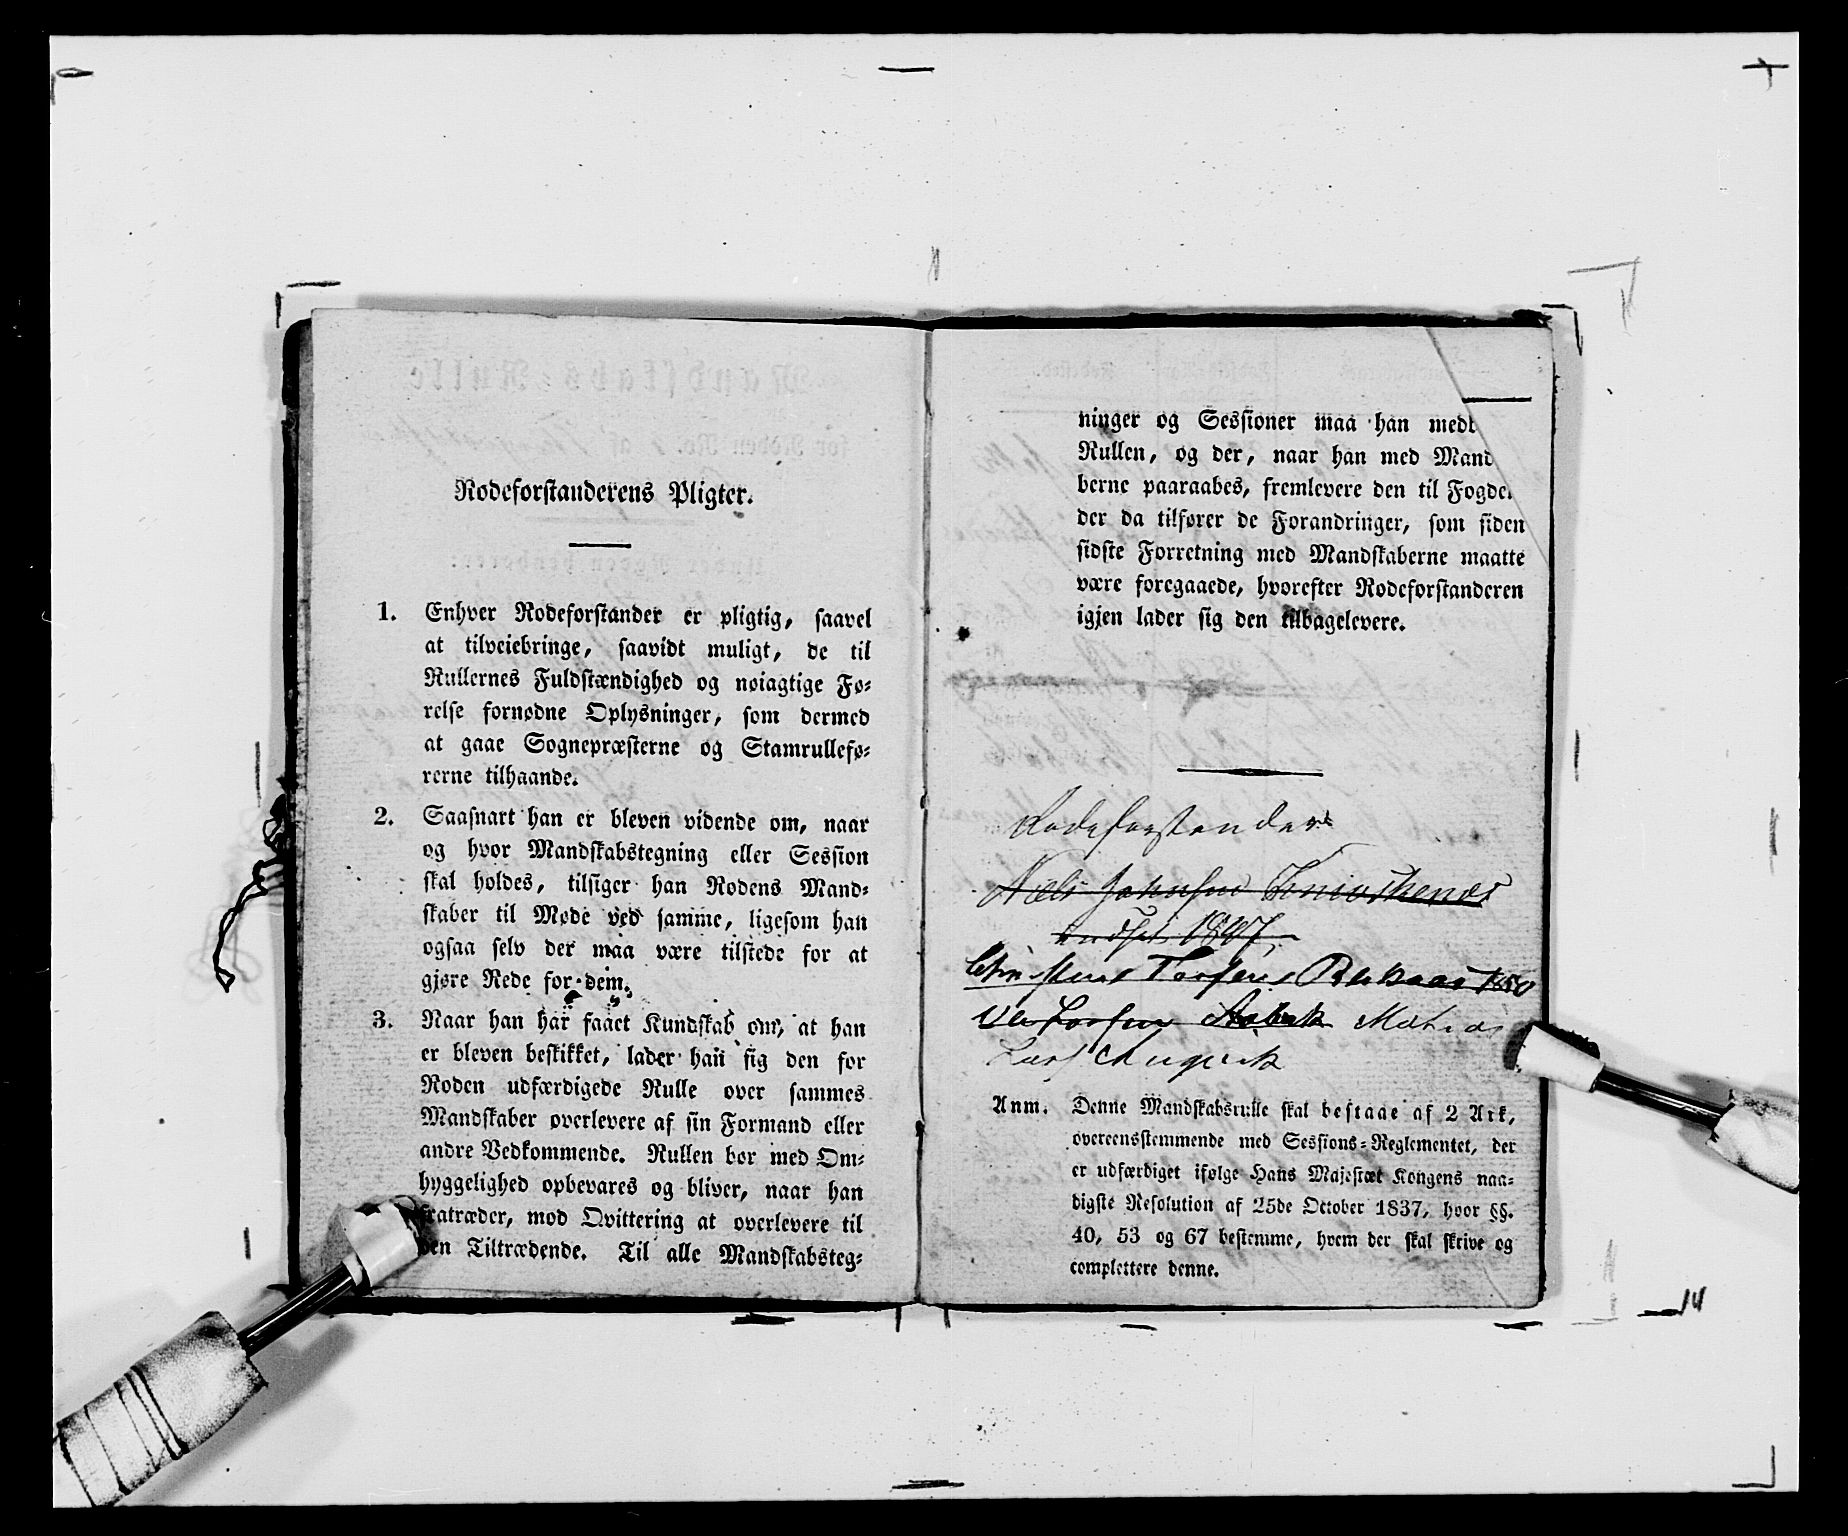 Rodeforstanderens Pligter.
1. Enhver Rodeforstander er pligtig, saavel
at tilveiebringe, saavidt muligt, de til
Rullernes Fuldstændighed og nøiagtige Fø-
relse fornødne Oplysninger, som dermed
at gaae Sognepræsterne og Stamrullefø-
rerne tilhaande.
2. Saasnart han er bleven vidende om, naar
og hvor Mandskabstegning eller Session
skal holdes, tilsiger han Rodens Mand-
skaber til Møde ved samme, ligesom han
ogsaa selv der maa være tilstede for at
gjøre Rede for dem.
3. Naar han har faaet Kundskab om, at han
er bleven beskikket, lader han sig den for
Roden udfærdigede Rulle over sammes
Mandskaber overlevere af sin Formand eller
andre Vedkommende. Rullen bør med Om-
hyggelighed opbevares og bliver, naar han
fratræder, mod Qvittering at overlevere til
den Tiltrædende. Til alle Mandskabsteg-
ninger og Sessioner maa han medb
Rullen, og der, naar han med Mand
berne paaraabes, fremlevere den til Fogde
der da tilfører de Forandringer, som siden
sidste Forretning med Mandskaberne maatte
være foregaaede, hvorefter Rodeforstanderen
igjen lader sig den tilbagelevere.
Rodeforstander
Niels Johnsen
1847
Torsens 1850
Mathias
Lars
Anm. Denne Mandskabsrulle skal bestaae af 2 Ark,
overeensstemmende med Sessions-Reglementet, der
er udfærdiget ifølge Hans Majestæt Kongens naa-
digste Resolution af 25de October 1837, hvor §§.
40, 53 og 67 bestemme, hvem der skal skrive og
complettere denne.
14